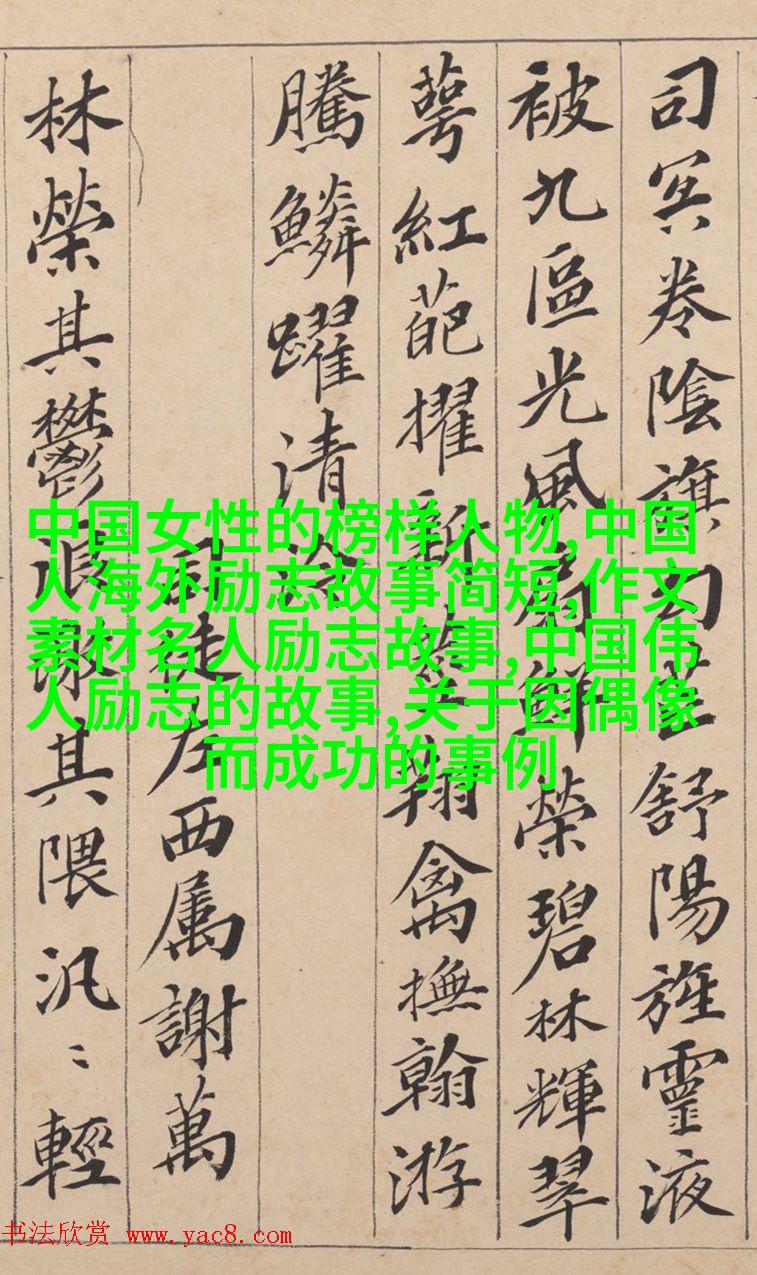 司冥卷陰旗勾芒舒陽旌靈液
被九區光風扇鮮榮碧林輝翠
萼紅葩擢新莖翔禽撫翰游
騰鱗躍清泠
司徒左西属謝萬
林榮其鬱浪激其隈汎〻輕
中国女性的榜样人物,中国
人海外励志故事简短,作文
素材名人励志故事,中国伟
人励志的故事,关于因偶像
而成功的事例
书法欣赏 www.yac8.com